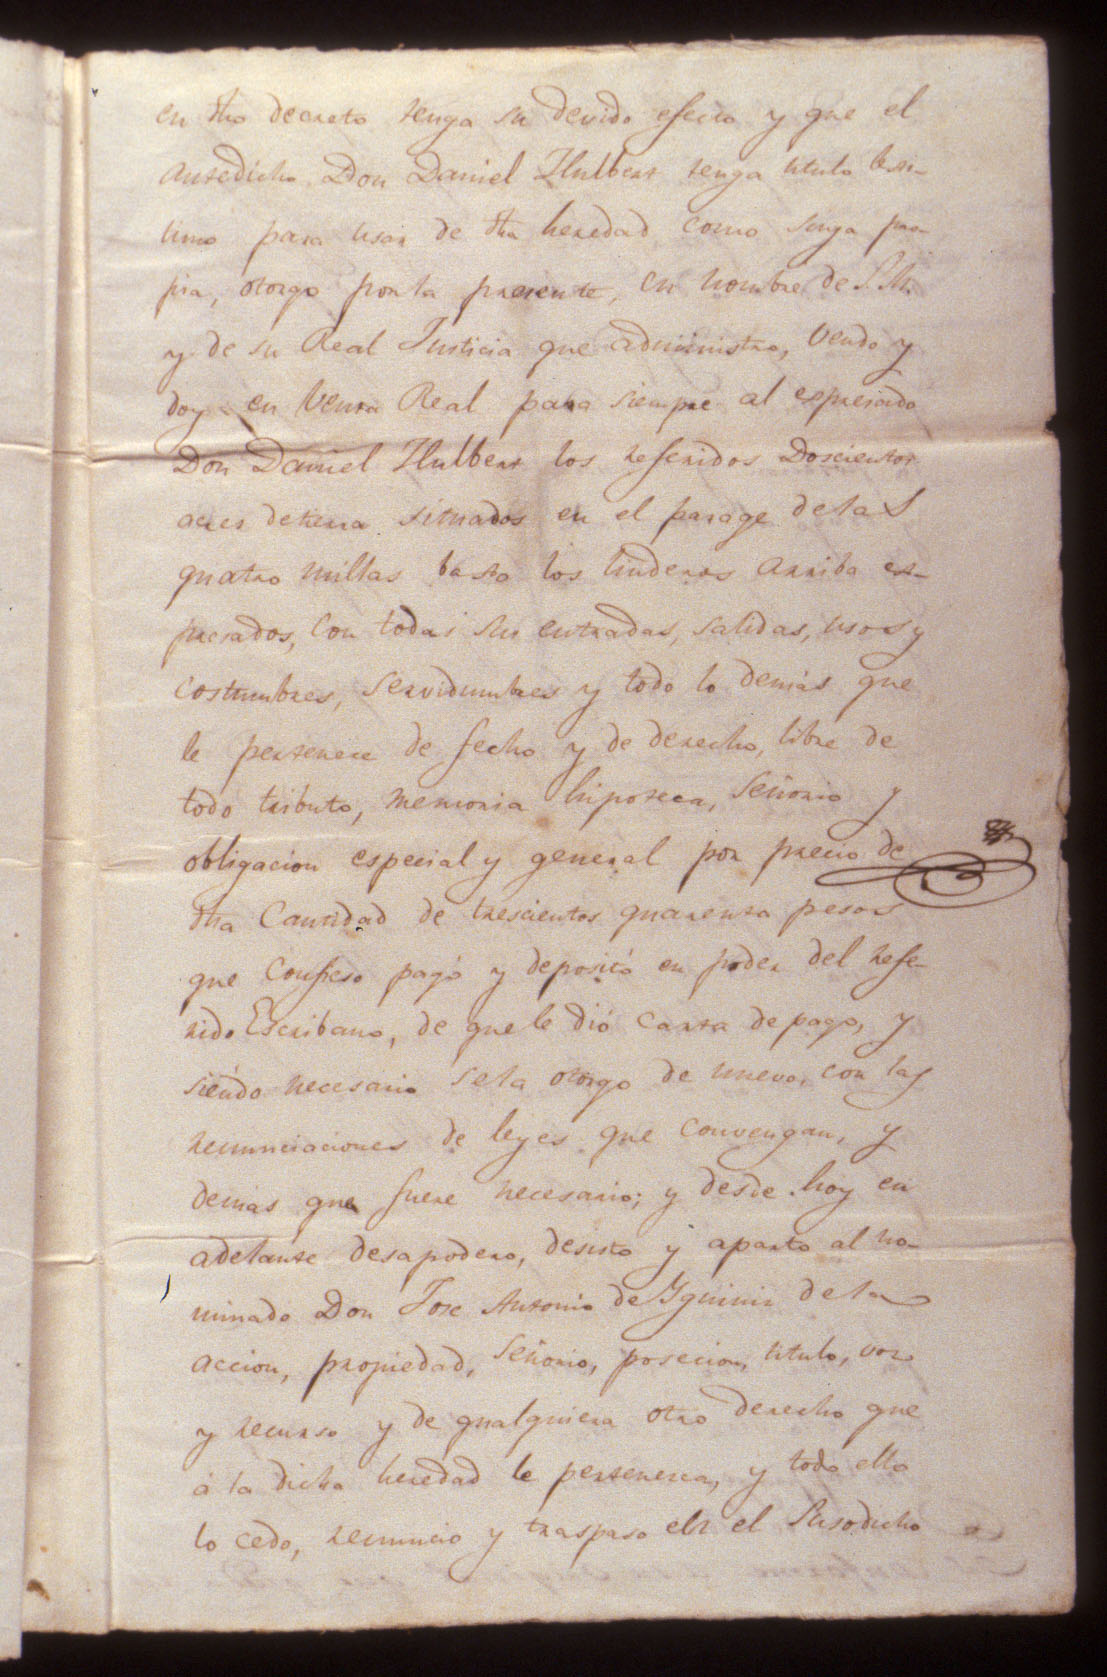 en dho decreto tenga su devido efecto y que el
antedicho Don Daniel Hulbert tenga titulo lexi-
timo para usar de dha heredad como suya pro-
pia, otorgo por la presente, en nombre de S. M.
y de su Real Justicia que administro, Vendo y
doy en Venta Real para siempre al expresado
Don Daniel Hulbert los referidos Doscientos
acres de tierra situados en el parage de las
quatro millas baxo los linderos arriba ex-
presados, con todas sus entradas, salidas, usos y
costumbres, servidumbres y todo lo demás que
le pertenece de fecho y de derecho, libre de
todo tributo, memoria hipoteca, Señorio y
obligacion especial y general por precio de
dha Cantidad de trescientos quarenta pesos
que Confieso pagó y depositó en poder del refe-
rido Escribano, de que le dió carta de pago, y
siendo necesario se la otorgo de nuevo, con las
renunciaciones de leyes que convengan, y
demas que fuere necesario; y desde hoy en
adelante desapodero, desisto y aparto al no-
minado Don Jose Antonio de Yguiniz de la
accion, propiedad, Señorio, posecion, titulo, voz
y recurso y de qualquiera otro derecho que
á la dicha heredad le pertenezca, y todo ello
lo cedo, renuncio y traspaso en el Susodicho